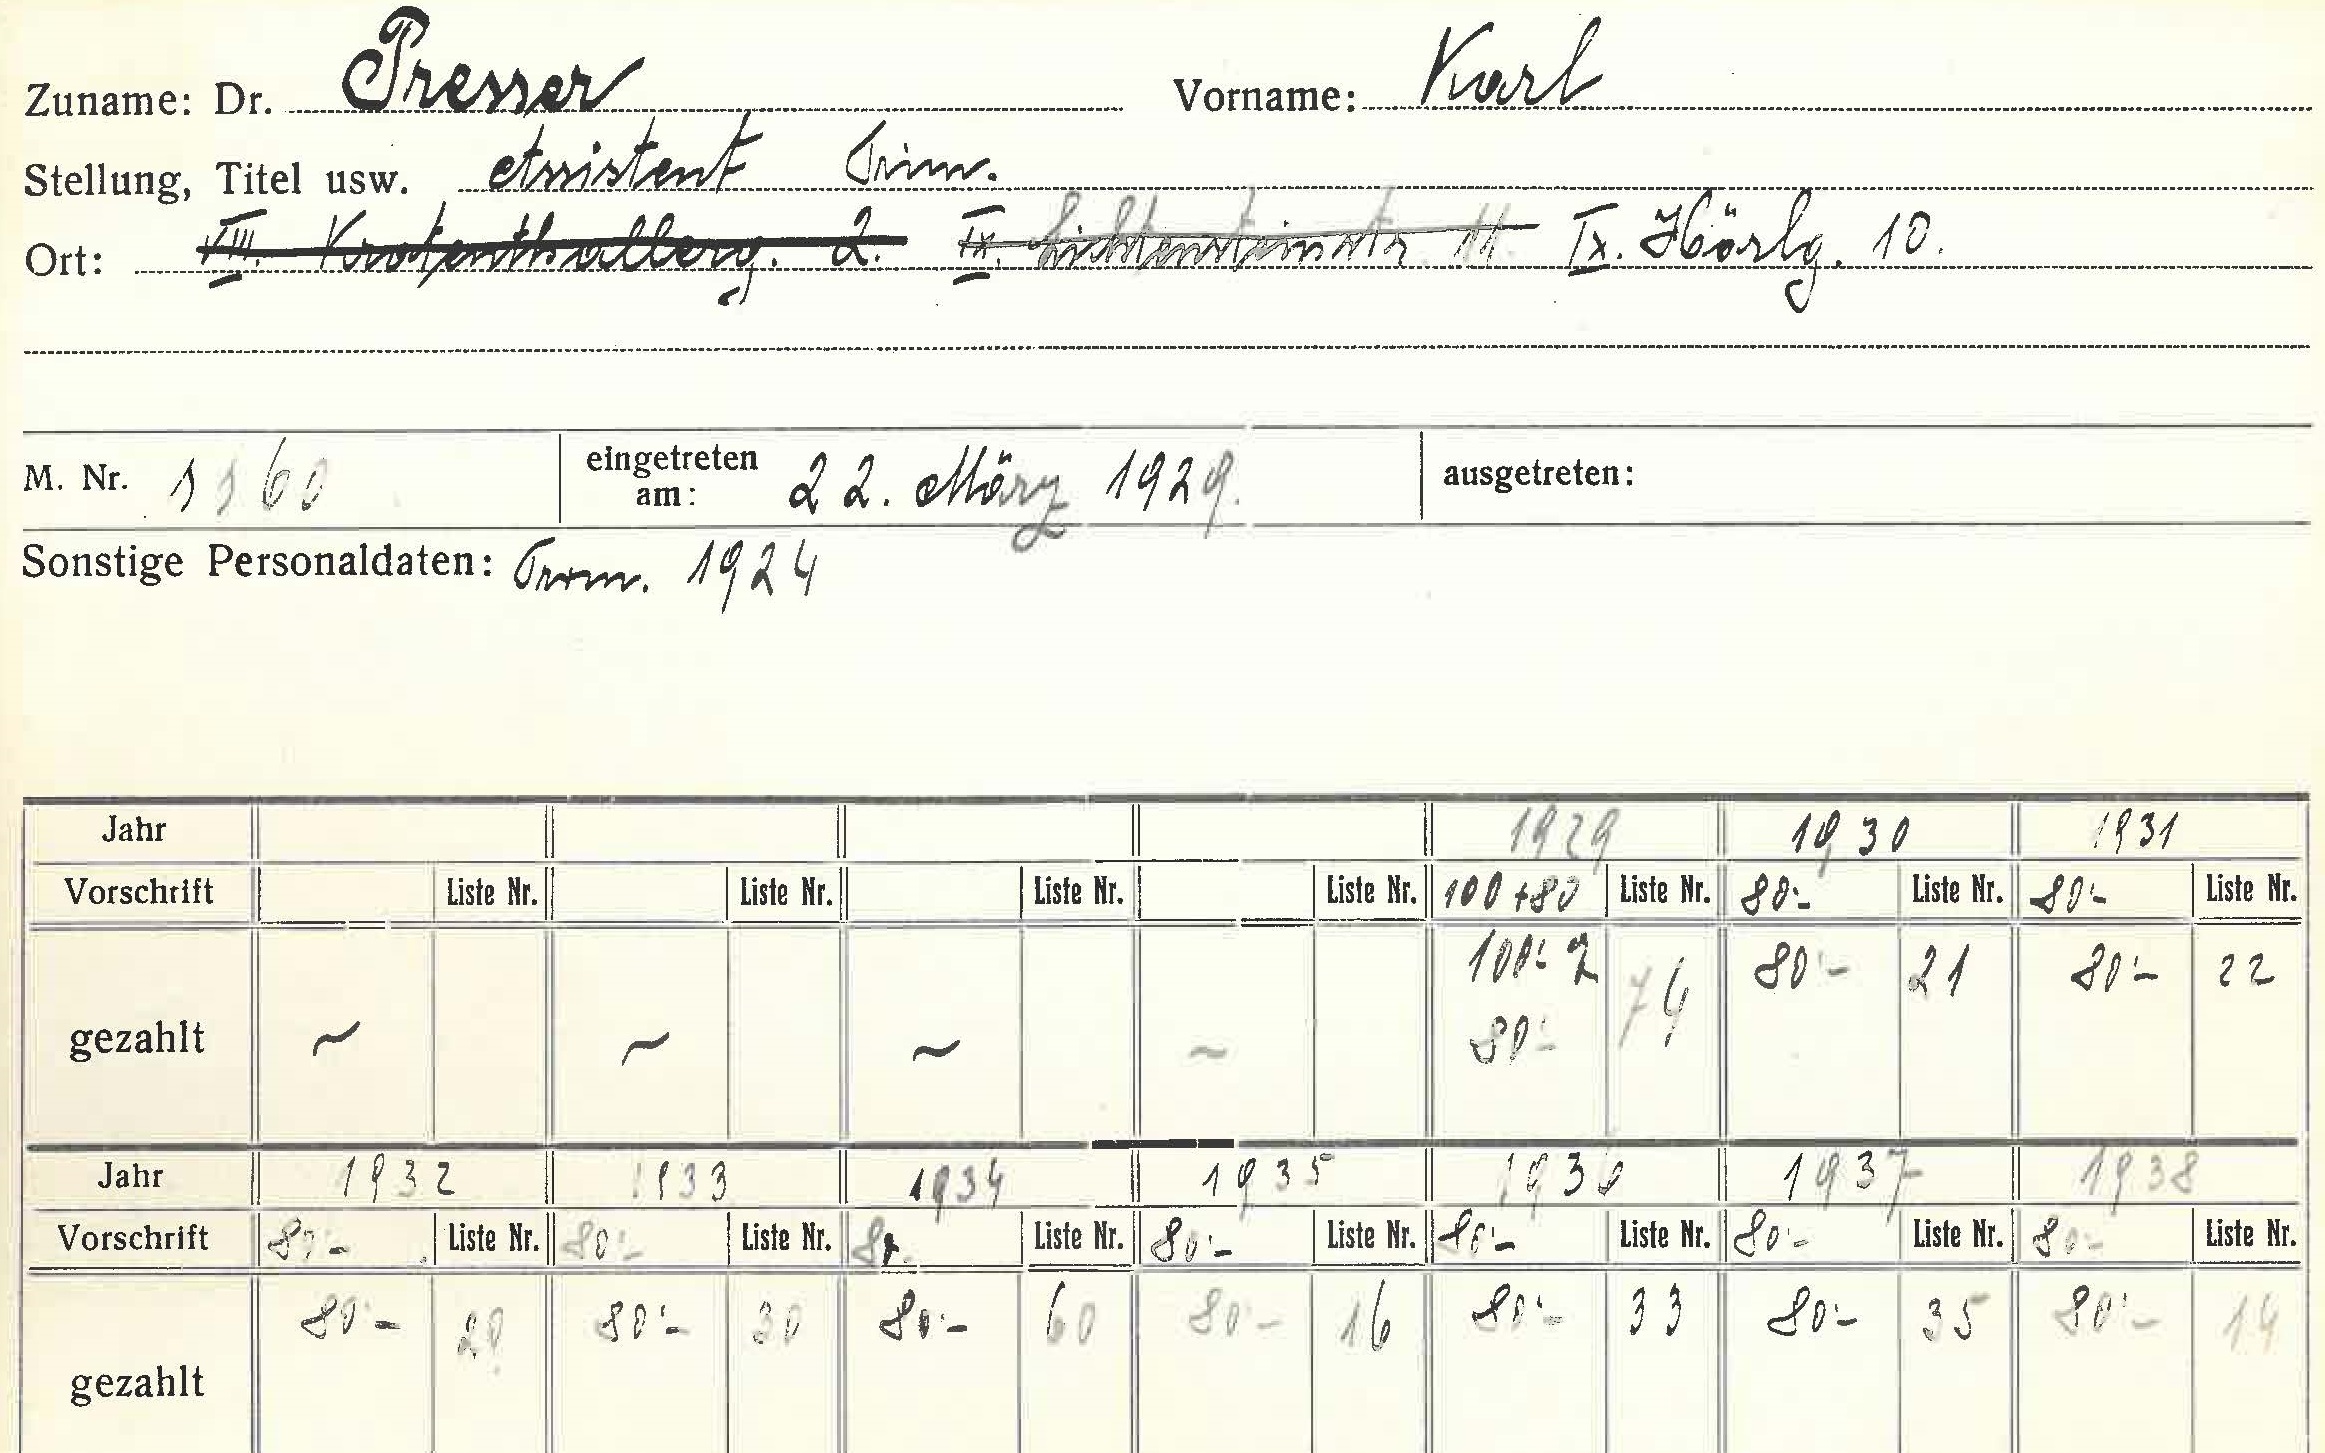 Zuname: Dr. Presser Vorname: Karl
Stellung, Titel usw. Assistent
Ort: VIII. Krotenthallerg. 2. IX. Lichtensteinstr. 11 IX. Hörlg. 10.
M. Nr. 1160 eingetreten am: 22. März 1929. ausgetreten:
Sonstige Personaldaten: Prom. 1924
Jahr 1929 1930 1931
Vorschrift Liste Nr. Liste Nr. Liste Nr. Liste Nr. 100+80 Liste Nr. 80.- Liste Nr. 80.- Liste Nr.
gezahlt ~ ~ ~ ~ 100.- 80.- 74 80.- 21 80.- 22
Jahr 1932 1933 1934 1935 1936 1937 1938
Vorschrift 80.- Liste Nr. 80.- Liste Nr. 80.- Liste Nr. 80.- Liste Nr. 80.- Liste Nr. 80.- Liste Nr. 80.- Liste Nr.
gezahlt 80.- 80.- 30 80.- 60 80.- 16 80.- 33 80.- 35 80.-